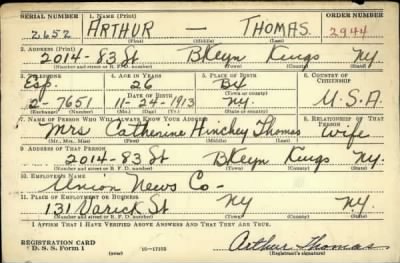 SERIAL NUMBER 1. NAME (Print) ORDER NUMBER
2652 ARTHUR — THOMAS 2944
(First) (Middle) (Last)
2. ADDRESS (Print)
2014-83 St BKlyn Kings Ny.
(Number and street or R. F. D. number) (Town) (County) (State)
3. TELEPHONE 4. AGE IN YEARS 5. PLACE OF BIRTH 6. COUNTRY OF CITIZENSHIP
Esp. 26
DATE OF BIRTH (Town or county)
2-7651 11-24-1913 Ny. U.S.A.
(Exchange) (Number) (Mo.) (Day) (Yr.) (State or country)
7. NAME OF PERSON WHO WILL ALWAYS KNOW YOUR ADDRESS 8. RELATIONSHIP OF THAT PERSON
Mrs Catherine Hinchey Thomas wife
(Mr., Mrs., Miss) (First) (Middle) (Last)
9. ADDRESS OF THAT PERSON
2014-83 St BKlyn Kings Ny.
(Number and street or R. F. D. number) (Town) (County) (State)
10. EMPLOYER'S NAME
Union News Co-
11. PLACE OF EMPLOYMENT OR BUSINESS
131 Varick St Ny Ny.
(Number and street or R. F. D. number) (Town) (County) (State)
I AFFIRM THAT I HAVE VERIFIED ABOVE ANSWERS AND THAT THEY ARE TRUE.
REGISTRATION CARD
D. S. S. Form 1 (over) 16—17105 Arthur Thomas
(Registrant's signature)